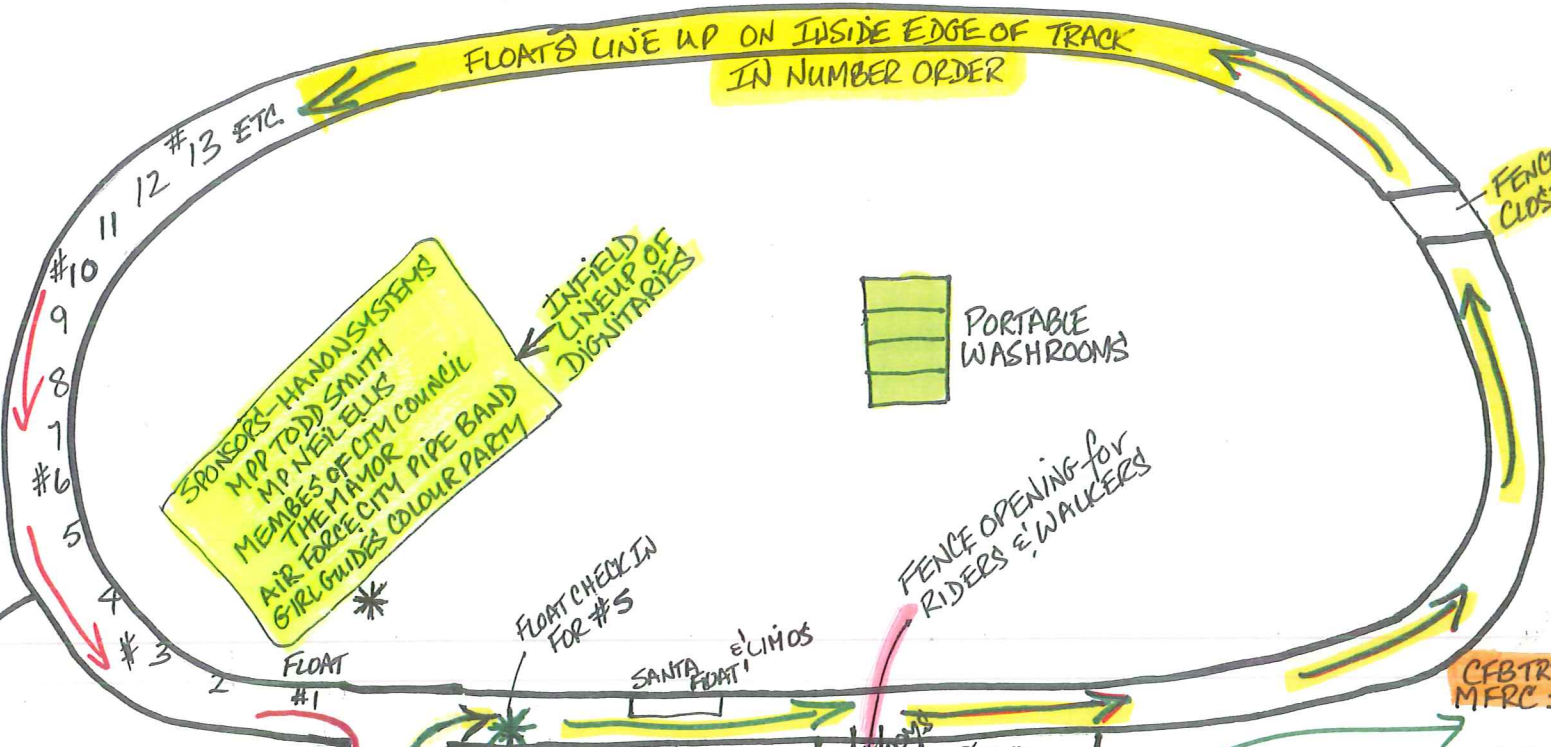 FLOATS LINE UP ON INSIDE EDGE OF TRACK
IN NUMBER ORDER
#13 ETC.
12
11
#10
9
8
7
#6
5
4
#3
2
FLOAT
#1
SPONSORS-HANON SYSTEMS
MPP TODD SMITH
MP NEIL ELLIS
MEMBES OF CITY COUNCIL
THE MAYOR
AIR FORCE CITY PIPE BAND
GIRL GUIDES COLOUR PARTY
INFIELD
LINEUP OF
DIGNITARIES
PORTABLE
WASHROOMS
FENCE OPENING for
RIDERS & WALKERS
FLOAT CHECK IN
FOR #S
SANTA
FLOAT
& LIMOS
CFBTR
MFRC